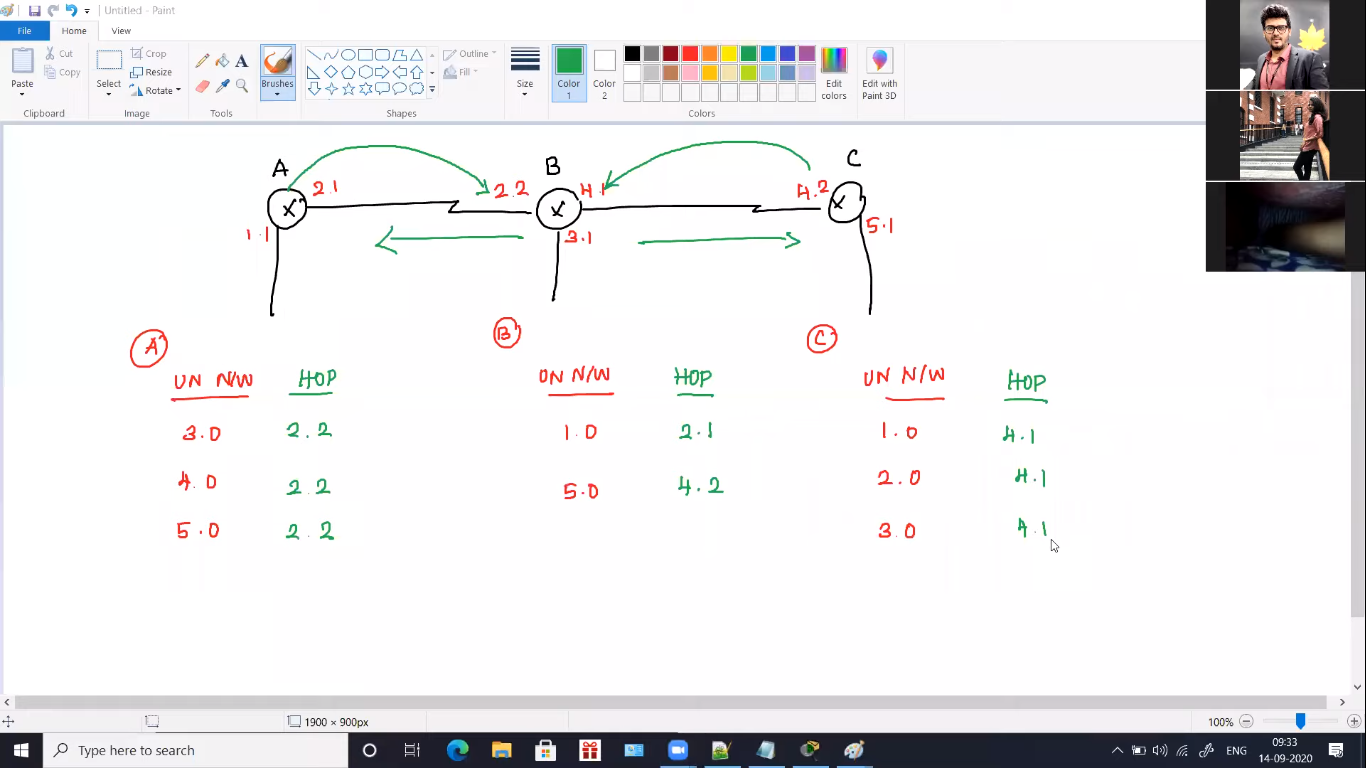 Untitled - Paint
File Home View
Paste Cut Copy
Clipboard
Select Crop Resize Rotate
Image
A
Tools
Brushes
Outline
Fill
Shapes
Size
Color 1
Color 2
Edit colors
Edit with Paint 3D
Colors
A B C
2.1 2.2 4.1 4.2
X X X
1.1 3.1 5.1
A B C
UN N/W HOP UN N/W HOP UN N/W HOP
3.0 2.2 1.0 2.1 1.0 4.1
4.0 2.2 5.0 4.2 2.0 4.1
5.0 2.2 3.0 4.1
1900 × 900px 100%
Type here to search
ENG 09:33
14-09-2020